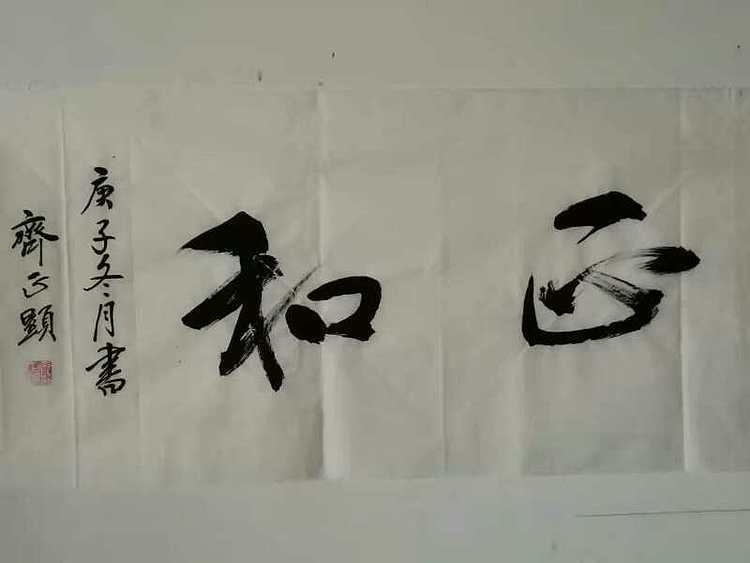 正和
庚子冬月書
齊正顯